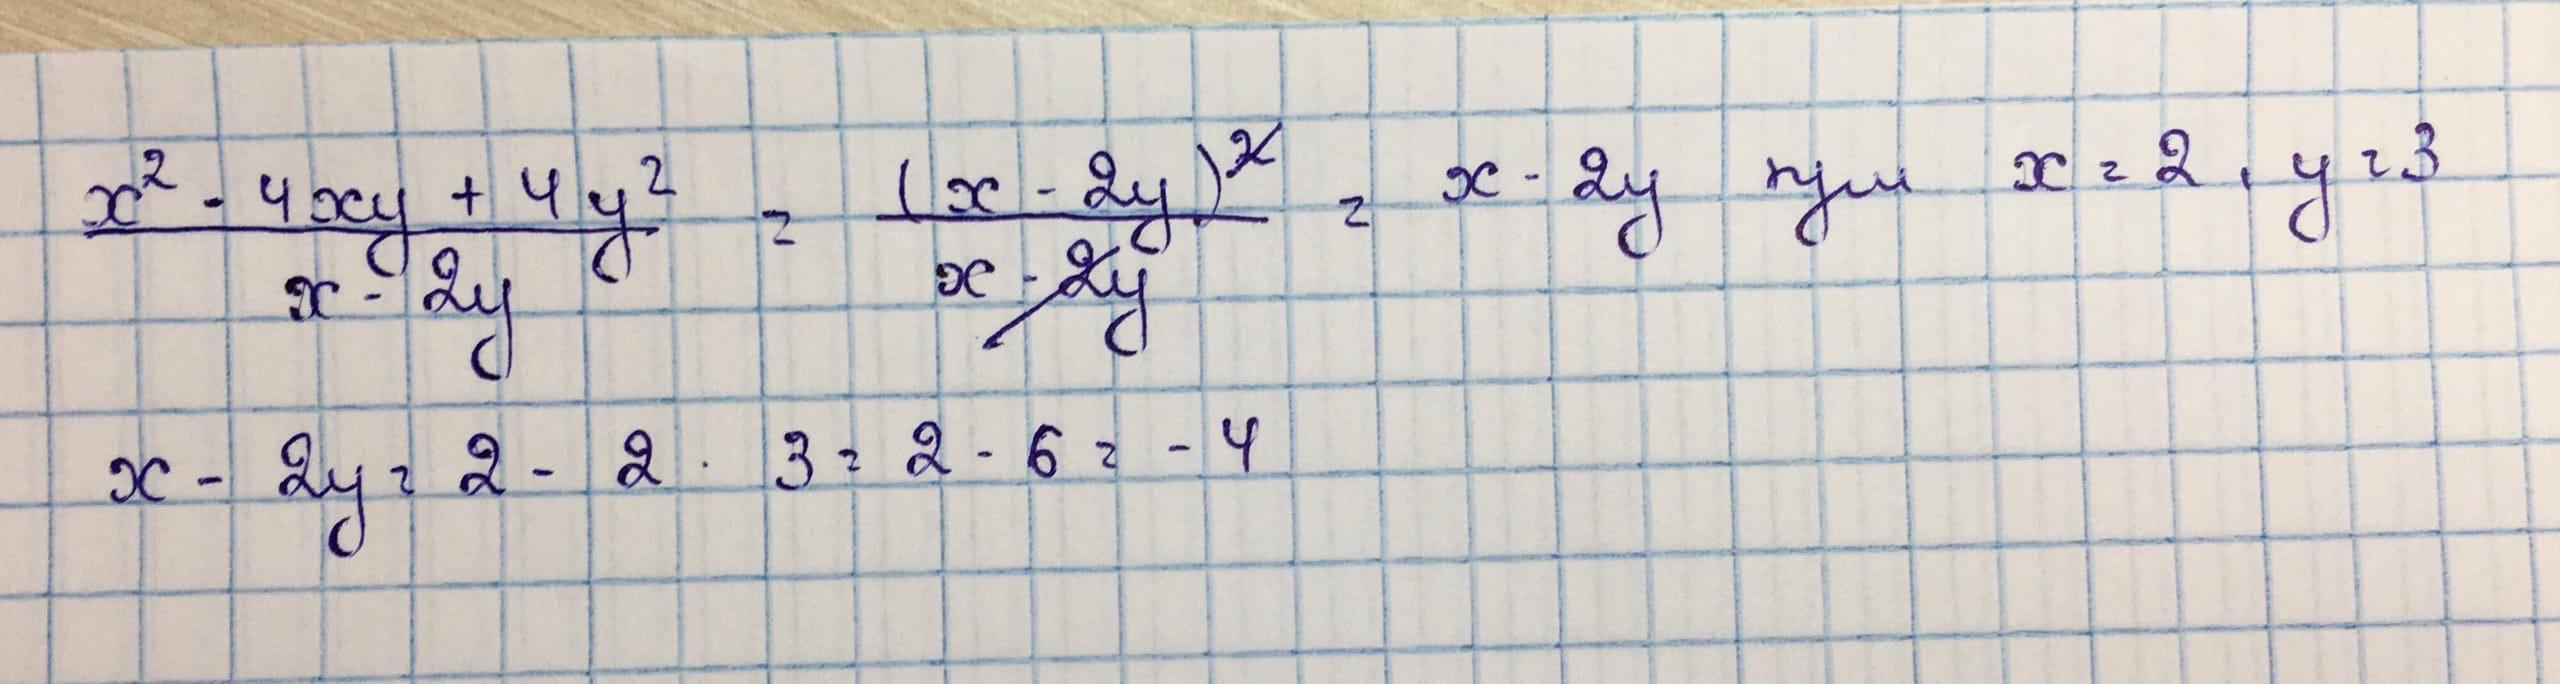 x² - 4xy + 4y² / x - 2y = (x - 2y)² / x - 2y = x - 2y при x = 2, y = 3
x - 2y = 2 - 2 · 3 = 2 - 6 = - 4